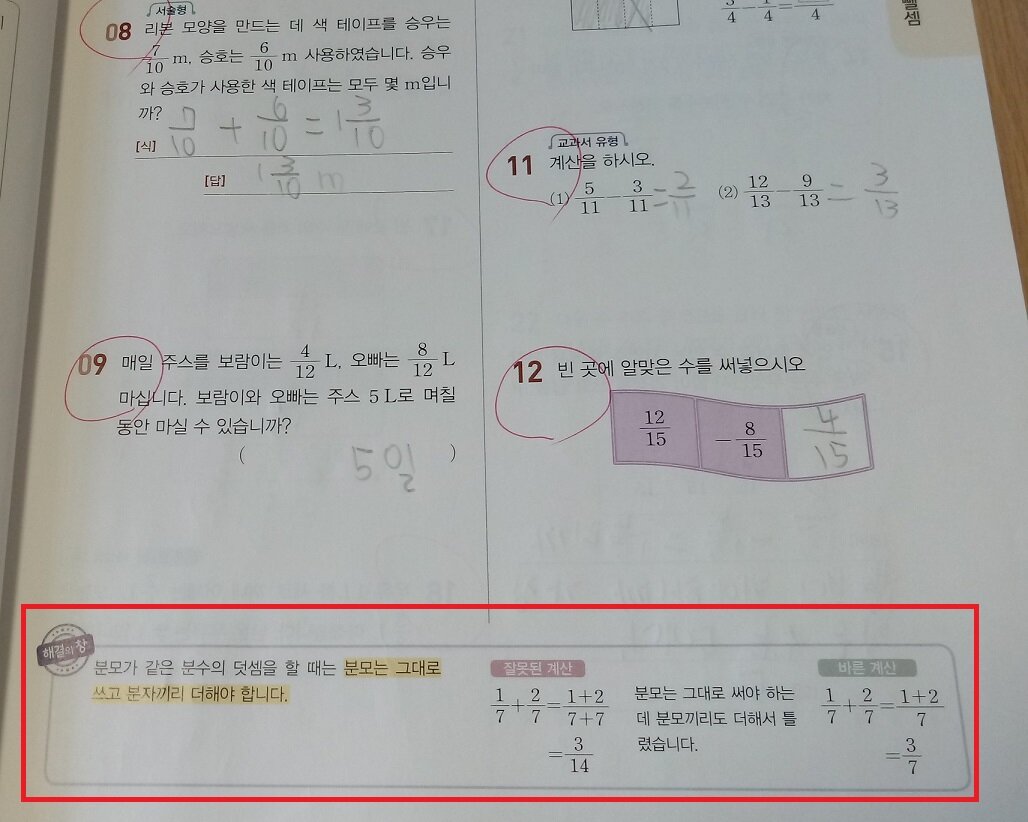 서술형
08 리본 모양을 만드는 데 색 테이프를 승우는
7/10 m, 승호는 6/10 m 사용하였습니다. 승우
와 승호가 사용한 색 테이프는 모두 몇 m입니
까?
[식] 7/10 + 6/10 = 1 3/10
[답] 1 3/10 m
09 매일 주스를 보람이는 4/12 L, 오빠는 8/12 L
마십니다. 보람이와 오빠는 주스 5 L로 며칠
동안 마실 수 있습니까?
( 5일 )
뺄셈
교과서 유형
11 계산을 하시오.
(1) 5/11 − 3/11 = 2/11 (2) 12/13 − 9/13 = 3/13
12 빈 곳에 알맞은 수를 써넣으시오
12/15 − 8/15 4/15
해결의 창
분모가 같은 분수의 덧셈을 할 때는 분모는 그대로
쓰고 분자끼리 더해야 합니다.
잘못된 계산
1/7 + 2/7 = 1+2/7+7
= 3/14
분모는 그대로 써야 하는
데 분모끼리도 더해서 틀
렸습니다.
바른 계산
1/7 + 2/7 = 1+2/7
= 3/7